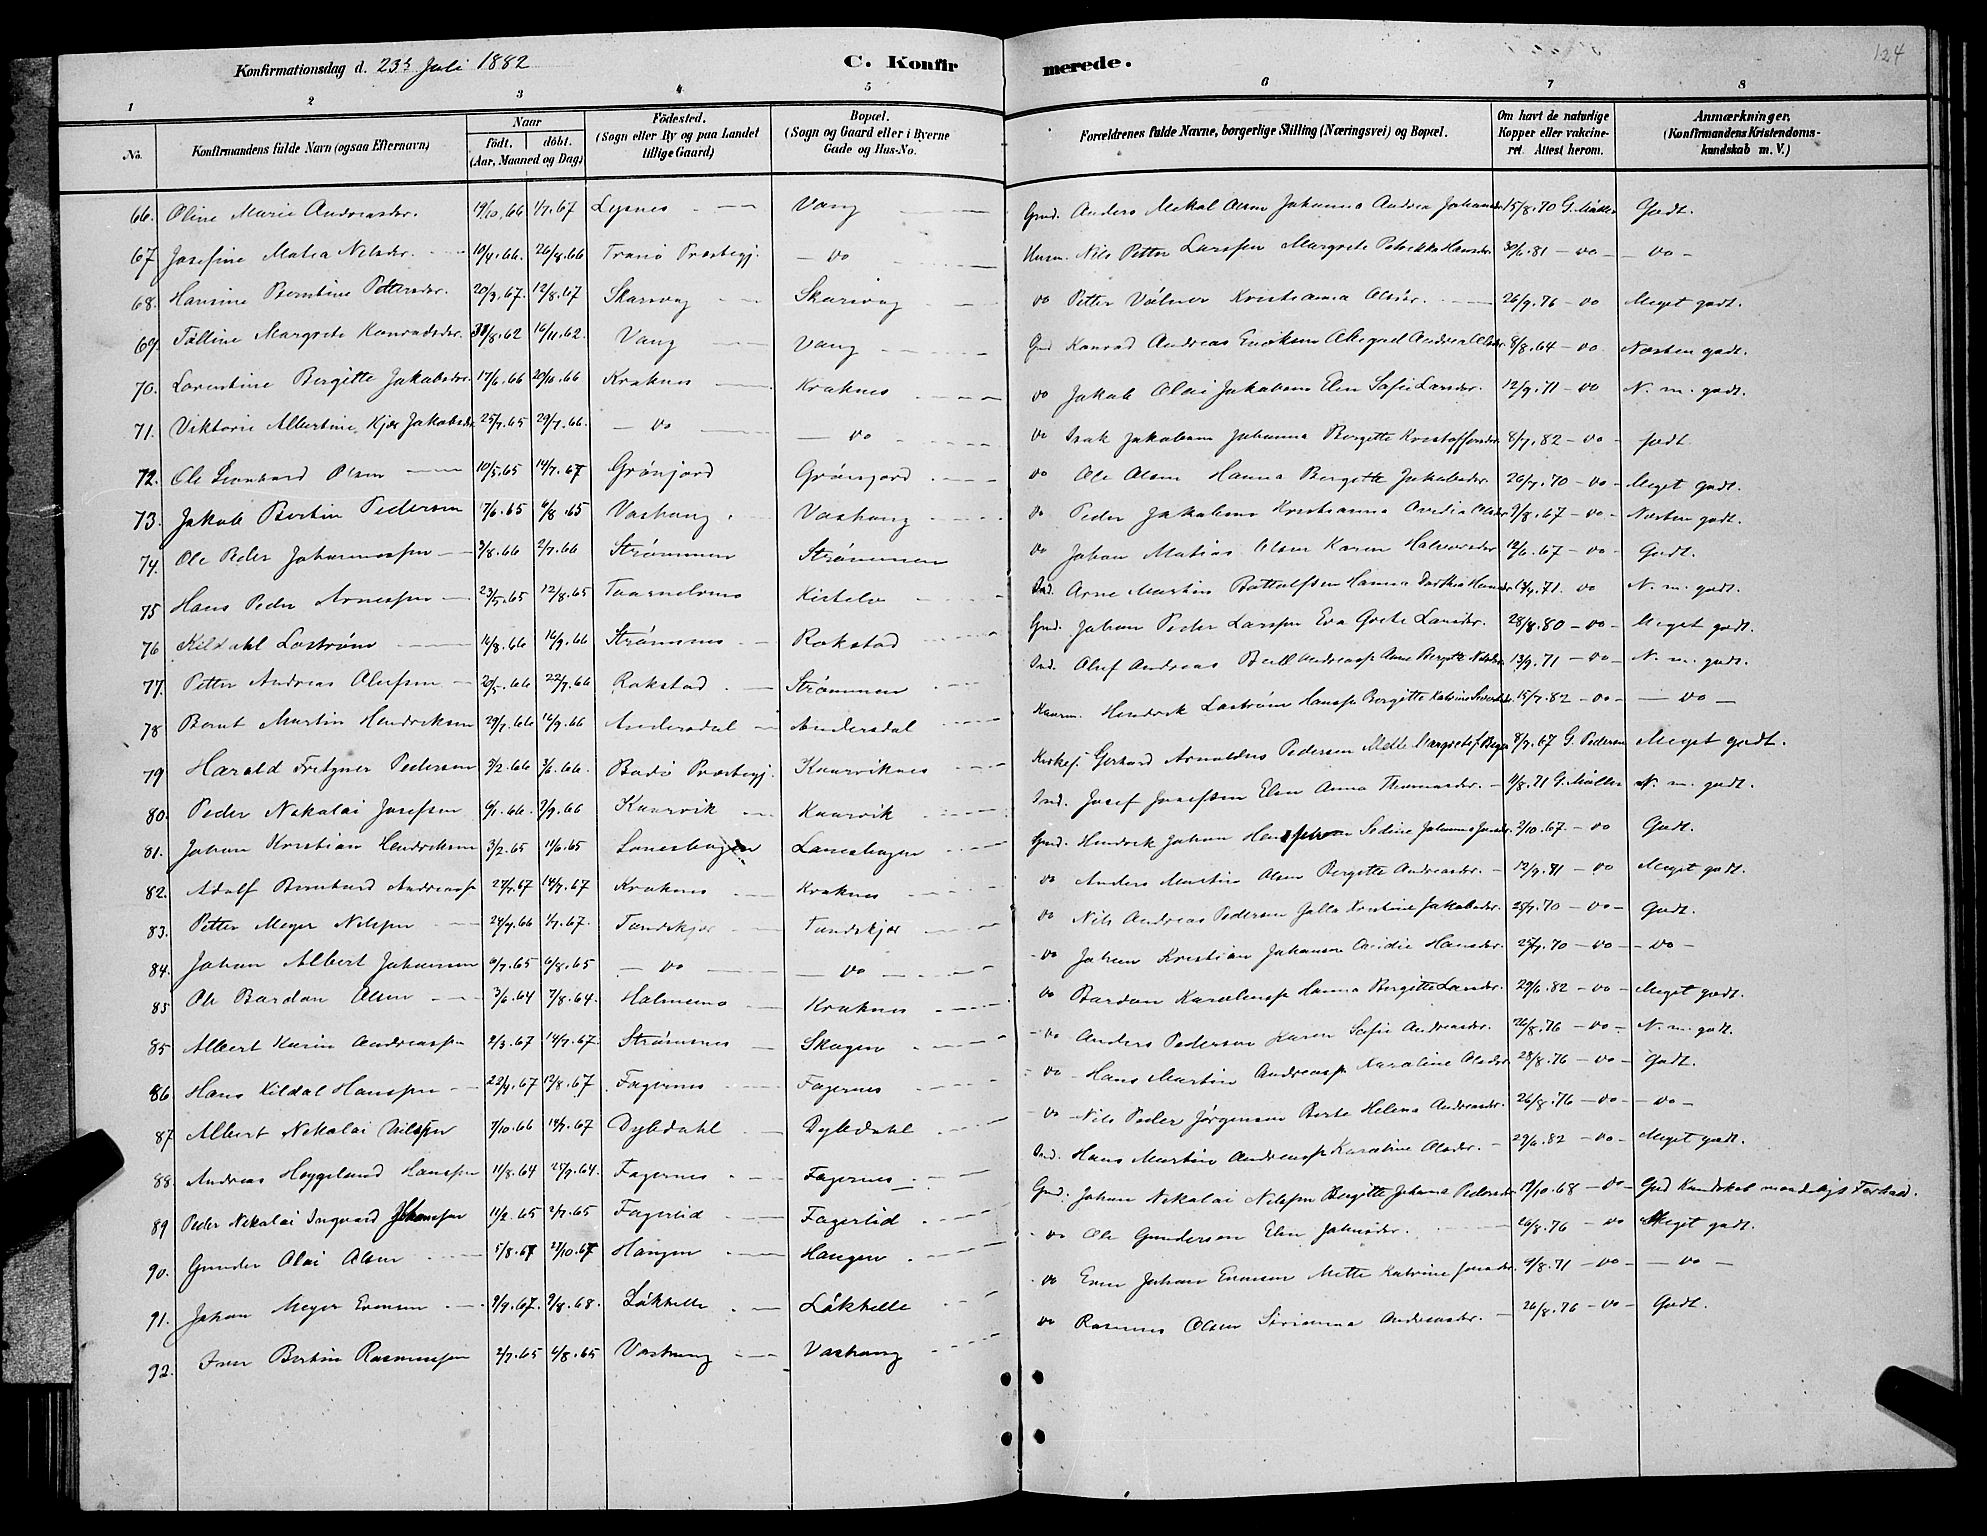 Konfirmationsdag d. 23de Juli 1882 C. Konfirmerede. 124
1 2 3 4 5 6 7 8
No. Konfirmandens fulde Navn (ogsaa Efternavn) Naar födt. döbt. (Aar, Maaned og Dag) Födested. (Sogn eller By og paa Landet tillige Gaard) Bopæl. (Sogn og Gaard eller i Byerne Gade og Hus-No. Forældrenes fulde Navne, borgerlige Stilling (Næringsvei) og Bopæl. Om havt de naturlige Kopper eller vakcineret. Attest herom. Anmærkninger. (Konfirmandens Kristendomskundskab m. V.)
66. Oline Marie Andreasdr. 19/10.66 1/7.67 Lysnes Vang Gmd. Anders Mekal Olsen Johanna Andrea Johansdr 15/8.70 G. Møller Godt.
67 Josefine Matea Nilsdr. 10/4.66. 26/8.66 Tranø Præstegj. do Husm. Nils Petter Larssen Margrete Petrikke Hansdr 30/6.81 do do
68. Hansine Berntine Pettersdr. 20/3.67. 12/8.67 Skarsvag Skarsvag do Petter Kristianna Olsdr. 26/9.76 do Meget godt.
69. Talline Margrete Konradsdr. 31/8.62 16/11.62. Vang Vang Gmd Konrad Andreas Eriksen Abigael Andrea Olsdr 8/8.64 do Næsten godt.
70. Lorentine Bergitte Jakobsdr. 17/6.66 20/10.66 Kraknes Kraknes do Jakob Olai Jakobsen Elen Sofie Larsdr. 12/9.71 do N. m. godt.
71. Viktorie Albertine Kjær Jakobsdr. 25/7.65 29/7.66. do do do Isak Jakobsen Johanna Bergitte Kristoffersdr 8/7.82 do godt
72. Ole Leonhard Olsen 10/5.65 14/7.67 Grønjord Grønjord do Ole Olsen Hanna Bergitte Jakobsdr 26/7.70 do Meget godt.
73. Jakob Bertin Pedersen 17/6.65 6/8.65 Vashaug Vashaug do Peder Jakobsen Kristianna Ovidia Olsdr 9/8.67 do Næsten godt.
74. Ole Peder Johannessen 3/8.66 2/7.66 Strømmen Strømmen do Johan Matias Olsen Karen Halvorsdr 12/6.67 do Godt.
75 Hans Peder Arnessen 23/5.65 12/8.65 Taarnelvnes Kistelv Ind. Arne Martin Bottolfsen Hanna Dorthea Hansdr 17/4.71. do N. m. godt.
76 Kildahl Lostrøm 14/8.66 16/9.66 Strømsnes Rokstad Gmd. Johan Peder Larssen Eva Grete Larsdr. 28/8.80 do Meget godt.
77. Petter Andreas Olufsen 20/5.66 22/7.66 Rokstad Strømmen Ind. Oluf Andreas Bull Andreass. Anne Bergitte Nilsdr 13/9.71 do N. m. godt.
78 Bernt Martin Hendriksen 29/7.66 16/9.66 Andersdal Andersdal Hendrik Lostrøm Hanss. Bergitte Katrine Sivertsdr 15/7.82 do do
79 Harald Fritzner Pedersen 3/2.66 3/6.66. Bodø Præstegj. Kaarviknes Kirkes. Gerhard Arnoldus Pedersen Mette Margrete f. 8/9.67 G. Pedersen Meget godt.
80. Peder Nekolai Josefsen 6/1.66. 2/9.66 Kaarvik Kaarvik Ind. Josef Josefsen Elen Anna Thomasdr. 11/8.71 G. Møller N. m. godt.
81. Johan Kristian Hendriksen 3/2.65 11/6.65 Laneshagen Laneshagen Gmd. Hendrik Johan Hanssen Sedine Johanna Jonsdr. 2/10.67 do Godt.
82. Adolf Bernhard Andreass. 27/4.67 14/7.67 Kraknes Kraknes do Anders Martin Olsen Bergitte Andreasdr. 12/9.81 do Meget godt.
83. Petter Meyer Nilssen 24/9.66 1/7.67. Tundskjær Tundskjær do Nils Andreas Pedersen Jella Kristine Jakobsdr. 25/7.70 do Godt.
84. Johan Albert Johansen 6/7.65 6/8.65 do do do Johan Kristian Johansen Ovidie Hansdr. 25/7.70 do do
85 Ole Bardon Olsen 3/6.64 7/8.64. Holmenes Kraknes do Bardon Karolius Hanna Bergitte Larsdr. 29/6.82 do Meget godt.
85 Albert Karin Andreassen 2/3.67 14/7.67. Strømsnes Skogen do Anders Pedersen Karen Sofie Andreasdr. 26/8.76 do N. m. godt.
86. Hans Kildal Hanssen 22/4.67 12/8.67 Fagernes Fagernes do Hans Martin Andreass. Karoline Olsdr 28/8.76 do Godt.
87 Albert Nekolai Nilssen 7/10.66 14/7.67 Dybdahl Dybdahl do Nils Peder Jørgensen Berte Helena Andreasdr. 26/8.76 do do
88. Andreas Heggelund Hanssen 11/8.64 25/9.64. Fagernes Fagernes Ind. Hans Martin Andreass. Karoline Olsdr. 29/6.82 do Meget godt.
89 Peder Nekolai Ingvard Johanssen 11/2.65 2/7.65 Fagerlid Fagerlid Gmd. Johan Nekolai Nilssen Bergitte Johanna Pedersdr 19/10.68 do God Kundskab maadeligt Forhold.
90. Gunder Olai Olsen 5/8.67 27/10.67 Haugen Haugen do Ole Gundersen Elen Johnsdr. 26/8.76 do Meget godt.
91. Johan Meyer Evensen 9/9.67. 9/8.68. Løkhelle Løkhelle do Even Johan Evensen Mette Katrine Jonsdr. 9/8.71 do do
92. Iver Bertin Rasmussen 2/7.65 6/8.65 Vashaug Vashaug do Rasmus Olsen Sirianna Andreasdr. 26/8.76 do Godt.